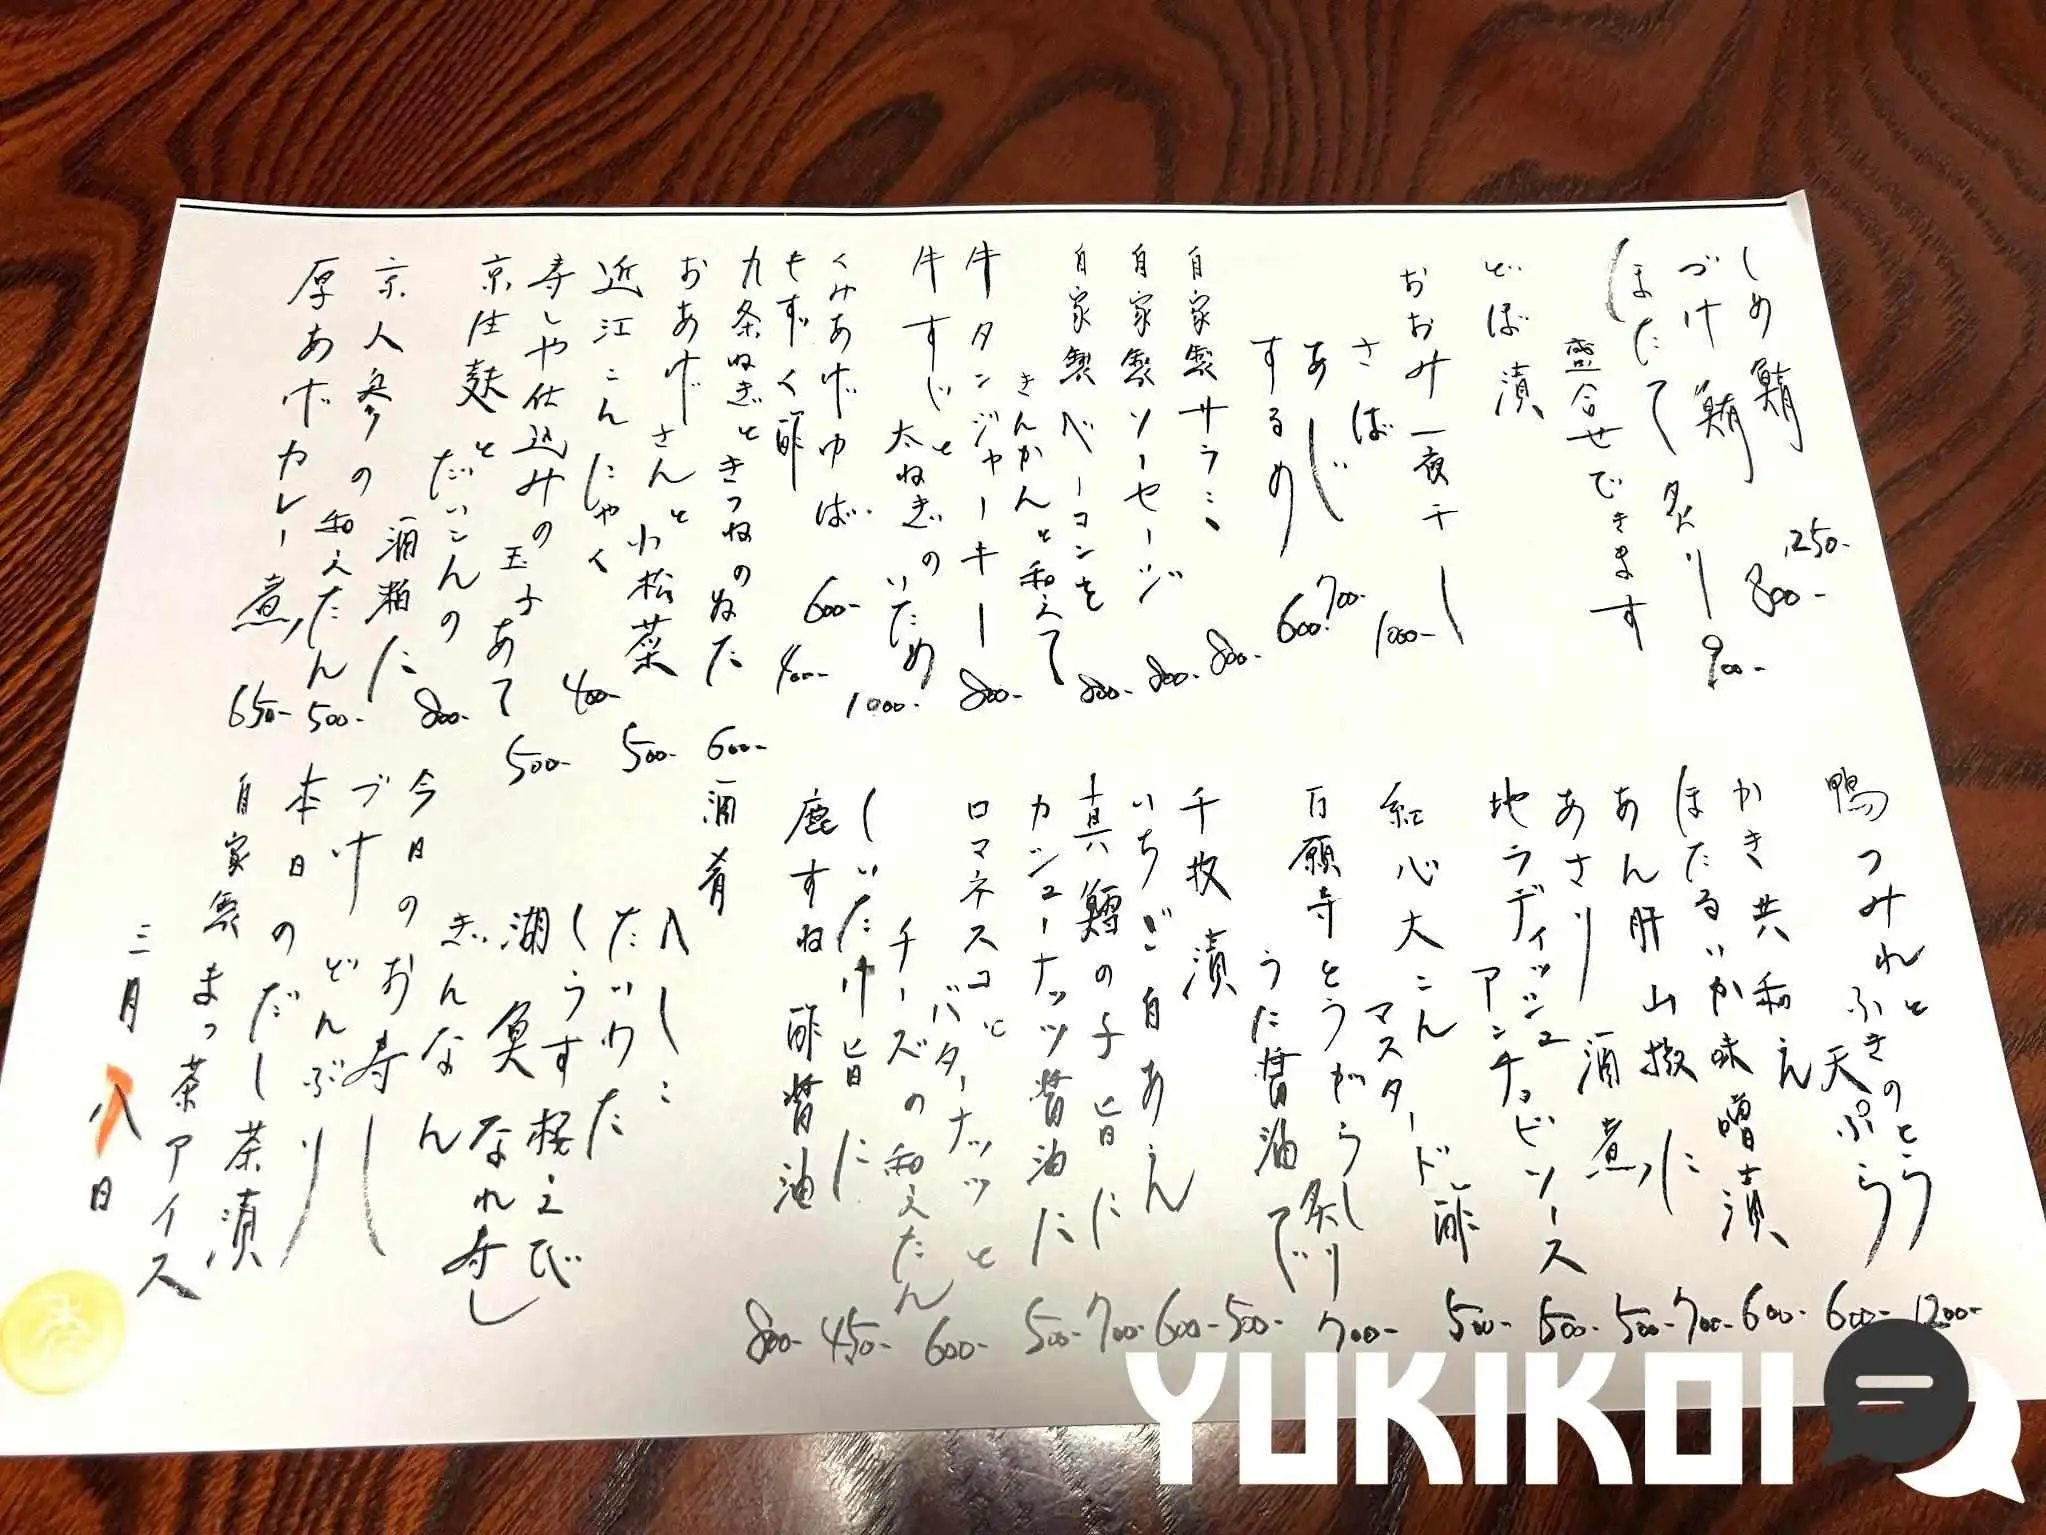 しめ鯖 1250-
づけ鮪 800-
ほたて 炙り 900-
盛合せできます
どぼ漬
おおみ一夜干し 1000-
さば
あじ 700-
するめ 600-
自家製サラミ 800-
自家製ソーセージ 800-
自家製ベーコンを
きんかんと和えて 800-
牛タンジャーキー 800-
牛すじと
太ねぎのいため 1000-
くみあげゆば 600-
もずく酢 400-
九条ねぎときつねのぬた 600-
おあげさんと小松菜 500-
近江こんにゃく 400-
寿しや仕込みの玉子あて 500-
京生麩と
だいこんの
酒粕に 800-
京人参の和えたん 500-
厚あげカレー煮 650-
鴨つみれとふきのとう
天ぷら 1200-
かき共和え 600-
ほたるいか味噌漬 600-
あん肝山椒に 700-
あさり酒煮 500-
地ラディッシュ
アンチョビソース 500-
紅心大こん
マスタード酢 500-
万願寺とうがらし炙り
うた醤油で 700-
千枚漬 500-
いちご白あえ 600-
真鱈の子旨に 700-
カシューナッツ醤油に 500-
ロマネスコと
バターナッツと
チーズの和えたん 600-
しいたけ旨に 450-
鹿すね酢醤油 800-
酒肴
へしこ
たいわた
しらす 桜えび
湖魚なれ寿し
ぎんなん
今日のお寿し
づけどんぶり
本日のだし茶漬
自家製まっ茶アイス
三月八日
YUKIKOI